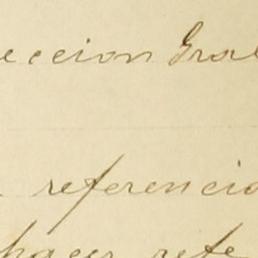 eccion Gral
referencia
hacer refe